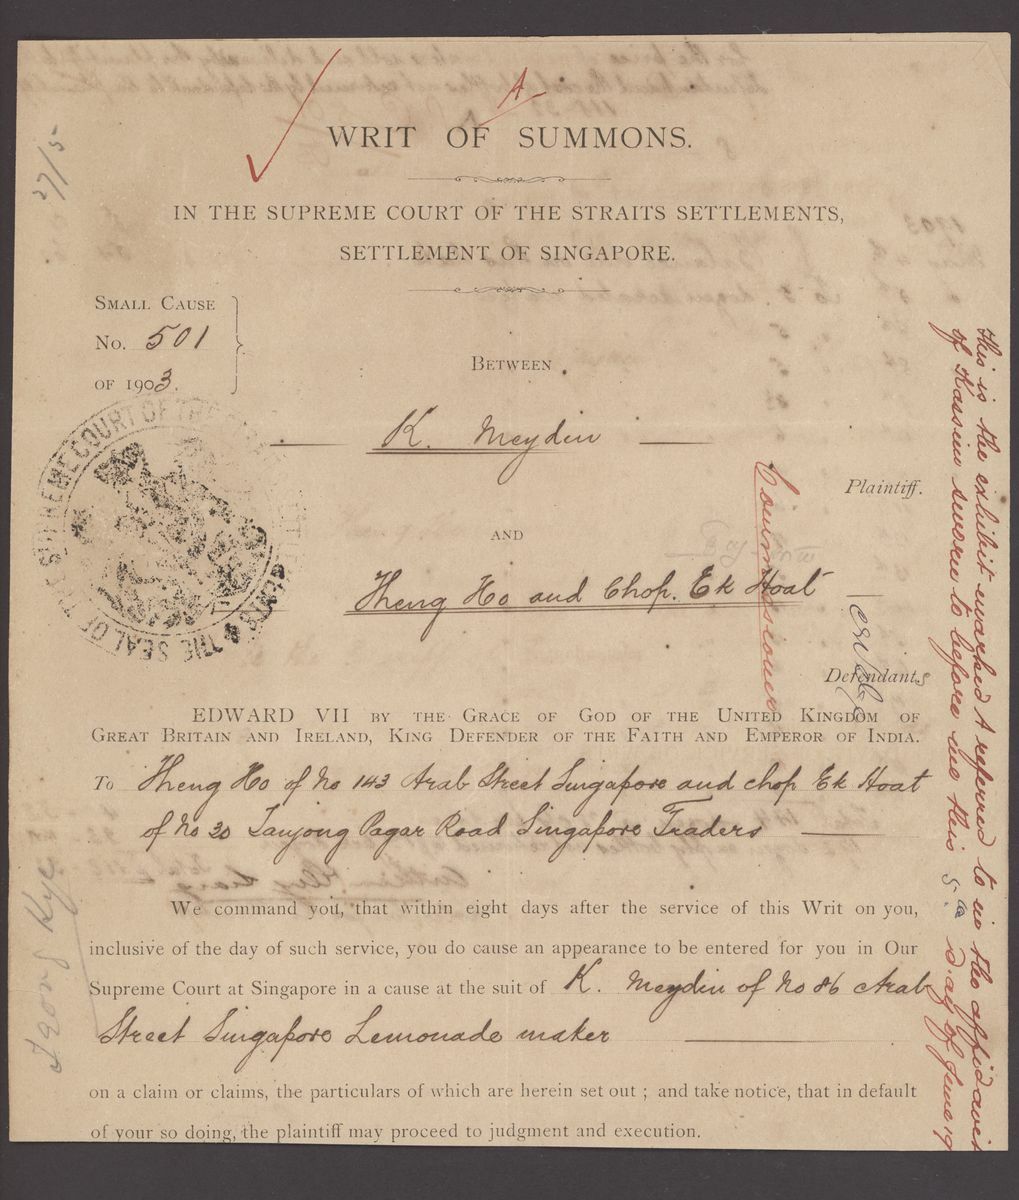 A
WRIT OF SUMMONS.
IN THE SUPREME COURT OF THE STRAITS SETTLEMENTS,
SETTLEMENT OF SINGAPORE.
27/5
SMALL CAUSE
No. 501
OF 1903.
BETWEEN
K. Meydin
Plaintiff.
AND
Theng Ho and Chop. Ek Hoat
Defendants
THE SEAL OF THE SUPREME COURT OF THE
EDWARD VII BY THE GRACE OF GOD OF THE UNITED KINGDOM OF
GREAT BRITAIN AND IRELAND, KING DEFENDER OF THE FAITH AND EMPEROR OF INDIA.
To Theng Ho of No 143 Arab Street Singapore and chop Ek Hoat
of No 20 Tanjong Pagar Road Singapore Traders
We command you, that within eight days after the service of this Writ on you,
inclusive of the day of such service, you do cause an appearance to be entered for you in Our
Supreme Court at Singapore in a cause at the suit of K. Meydin of No 86 Arab
Street Singapore Lemonade maker
on a claim or claims, the particulars of which are herein set out ; and take notice, that in default
of your so doing, the plaintiff may proceed to judgment and execution.
this is the exhibit marked A referred to in the affidavit
of Kassim sworn to before me this 5th day of June 19
Commissioner